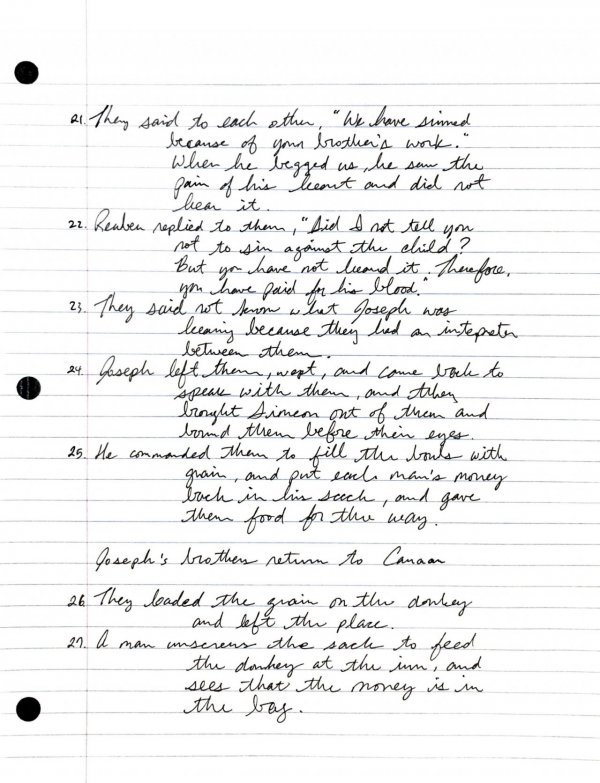 21. They said to each other, "We have sinned
because of your brother's work."
When he begged us, he saw the
pain of his heart and did not
hear it.
22. Reuben replied to them, "Did I not tell you
not to sin against the child?
But you have not heard it. Therefore,
you have paid for his blood."
23. They said not know what Joseph was
hearing because they had an intepreter
between them.
24. Joseph left them, wept, and came back to
speak with them, and they
brought Simeon out of them and
bound them before their eyes.
25. He commanded them to fill the bowls with
grain, and put each man's money
back in his sack, and gave
them food for the way.
Joseph's brothers return to Canaan
26. They loaded the grain on the donkey
and left the place.
27. A man unscrews the sack to feed
the donkey at the inn, and
sees that the money is in
the bag.